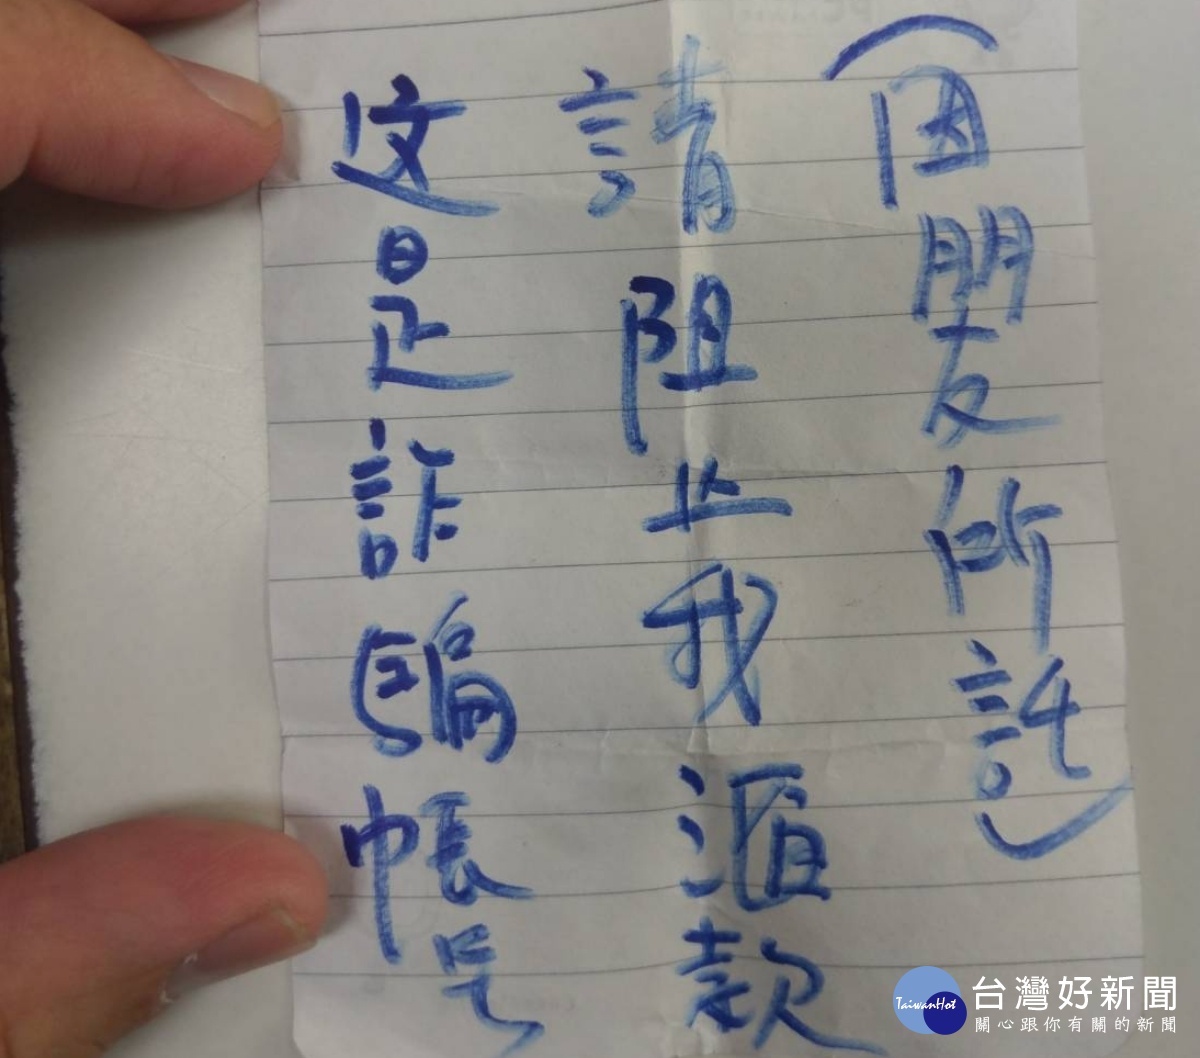 (因朋友所託)
請阻止我滙款
这是詐騙帳号
TaiwanHot
台灣好新聞
關心跟你有關的新聞